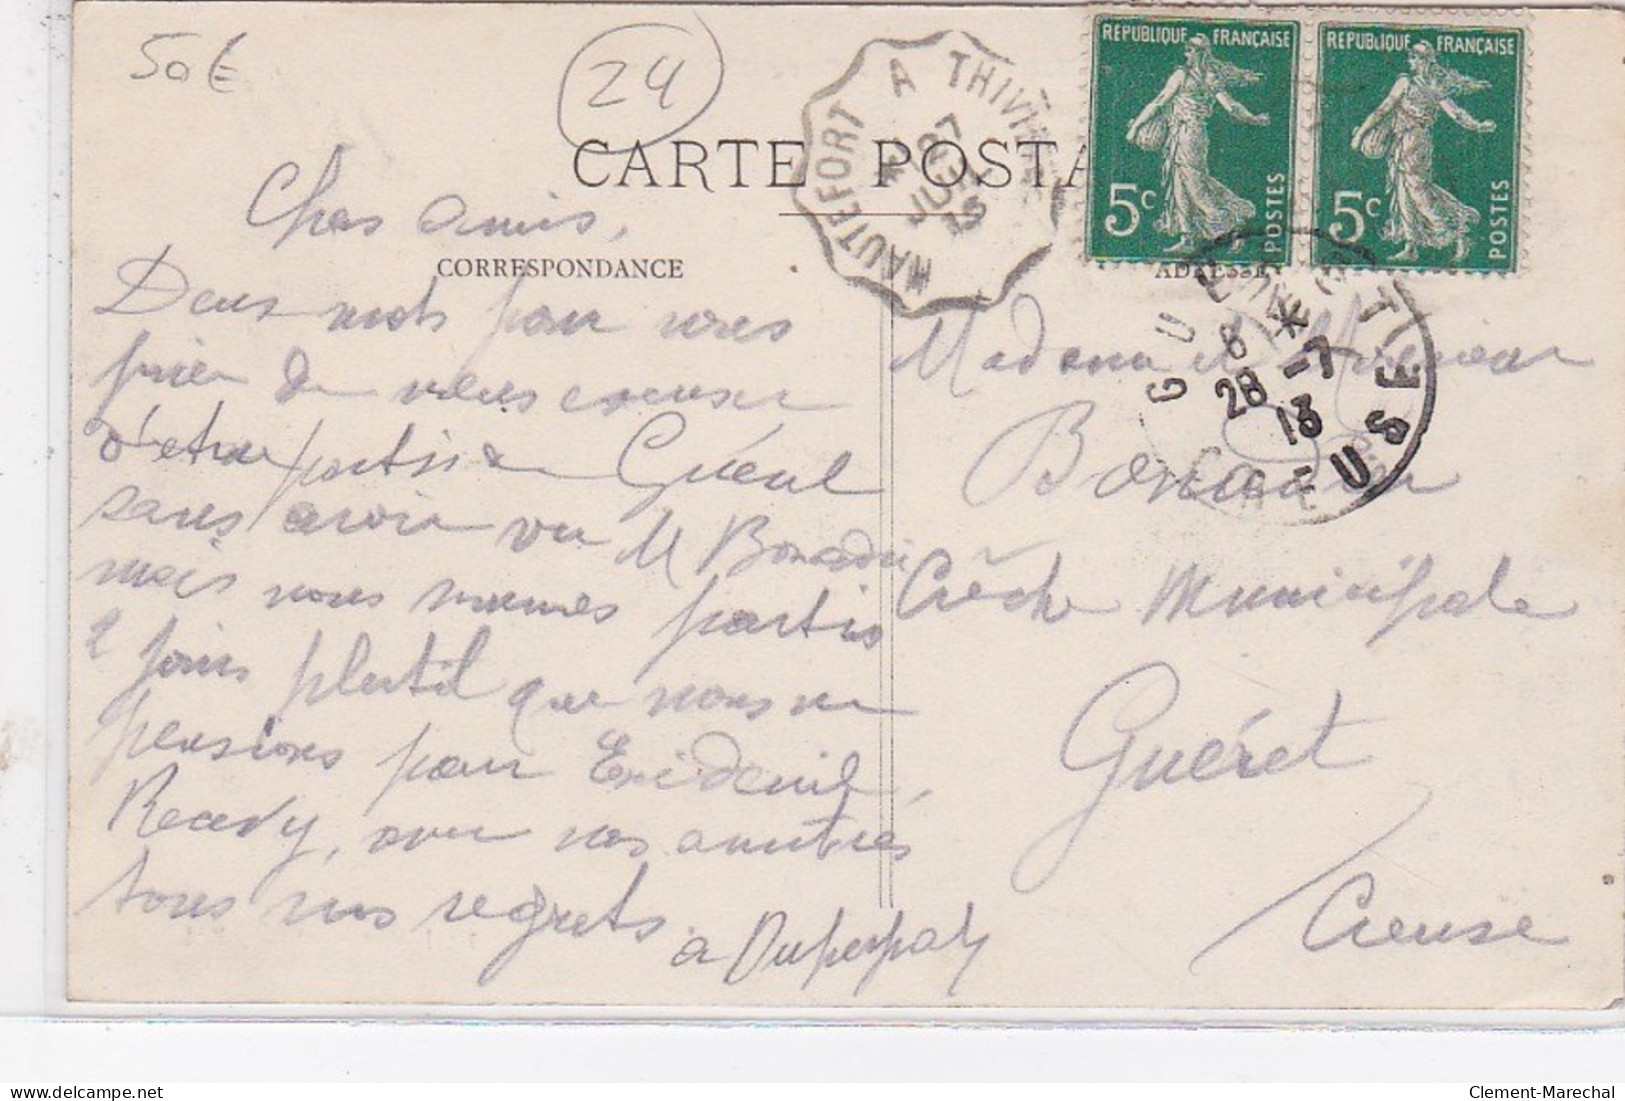 50€
24
CARTE POSTA
HAUTEFORT A THIVI
CORRESPONDANCE
ADRESSE
REPUBLIQUE FRANÇAISE
5c
POSTES
REPUBLIQUE FRANÇAISE
5c
POSTES
GUERET
8 *
28 -7
13
CREUSE
Chers amis,
Deux mots pour vous
prier de nous excuser
d'etre partis de Guéret
sans avoir vu M Bonadier
mais nous sommes partis
2 jours plutôt que nous ne
pensions pour Exideuil,
Recevez, avec nos amitiés
tous nos regrets.
Madame et Monsieur
Crèche Municipale
Guéret
Creuse
Clement-Marechal